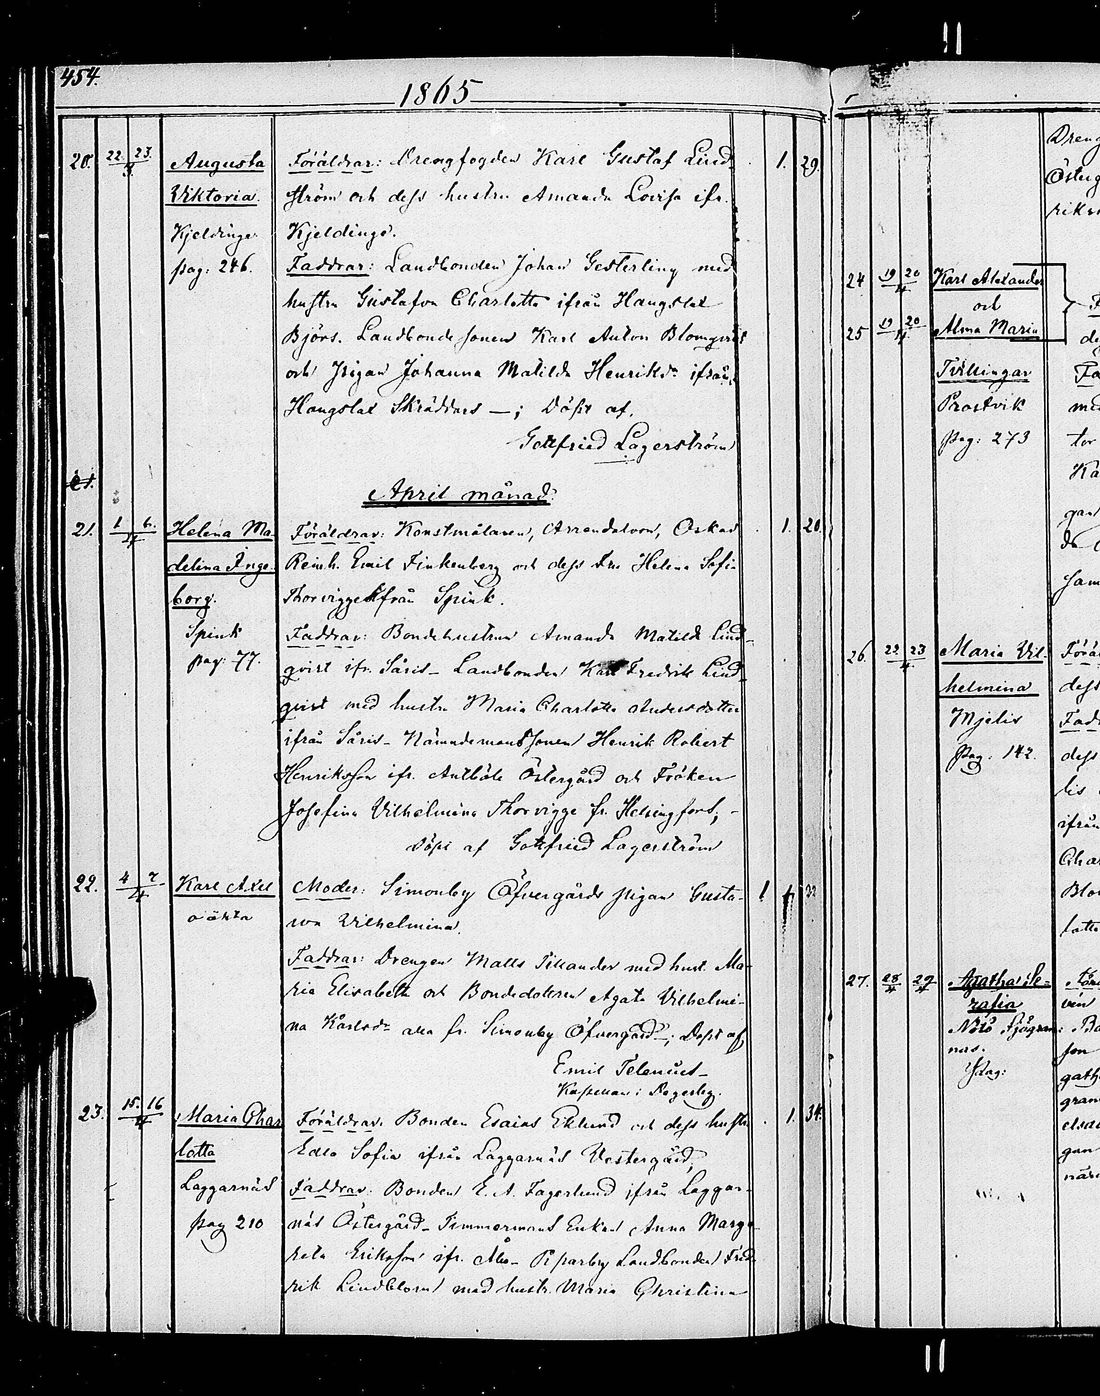 454.
1865
20. 22. 23. 3 Augusta Viktoria. Kjeldinge pag: 246. 1. 29.
Föräldrar: Drengfogden Karl Gustaf Lind-
ström och dess hustru Amanda Lovisa ifr.
Kjeldinge.
Faddrar: Landbonden Johan Gesterling med
hustru Gustafva Charlotta ifrån Haugslax
Björs. Landbonde sonen Karl Anton Blomqvist
och Pigan Johanna Matilda Henriksdr ifrån
Haugslax Skräddars —; Döpt af.
Gottfried Lagerström
21.
April månad.
21. 1 6. 4 Helena Ma-
delina Inge-
borg.
Spink
pag: 77. 1. 20.
Föräldrar: Konstmålaren, Arrendatorn, Oskar
Reinh. Emil Finkenberg och dess Fru Helena Sofia
Thorvigge ifrån Spink.
Faddrar: Bondehustrun Amanda Matilda Lind-
qvist ifr. Såris - Landbonden Karl Fredrik Lind-
qvist med hustru Maria Charlotta Andersdotter
ifrån Såris - Nämndemans sonen Henrik Robert
Henriksson ifr. Antböle Östergård och Fröken
Josefina Vilhelmina Thorvigge fr. Helsingfors; -
Döpt af Gottfried Lagerström
22. 4 7 4 Karl Axel
oäkta 1 1 32
Moder: Simonby Öfvergårds pigan Gusta-
va Vilhelmina.
Faddrar: Drengen Matts Tillander med hust. Ma-
ria Elisabeth och Bondedottren Agata Vilhelmi-
na Karlsdr alla fr. Simonby Öfvergård; Döpt af
Emil Telenius
Kapellan i Pargas
23. 15. 16 4 Maria Char
lotta
Laggarnäs
pag 210 1. 34.
Föräldrar: Bonden Esaias Eklund och dess hustr.
Edla Sofia ifrån Laggarnäs Vestergård,
Faddrar: Bonden E. A. Fagerlund ifrån Laggar-
näs Östergård - Timmermans Enkan Anna Marga
reta Eriksson ifr. Åbo - Piparby Landbonden Fred
rik Lindblom med hustr. Maria Christina
Dreng
Österg
riks
24 19 20 4 Karl Alexander
och
25 19 20 4 Alma Maria
Tvillingar
Prostvik
pag: 273
26. 22 23 4 Maria Vil-
helmina
Mjelis
pag: 142.
27. 28 4 29 4 Agatha Se-
rafia
pag: